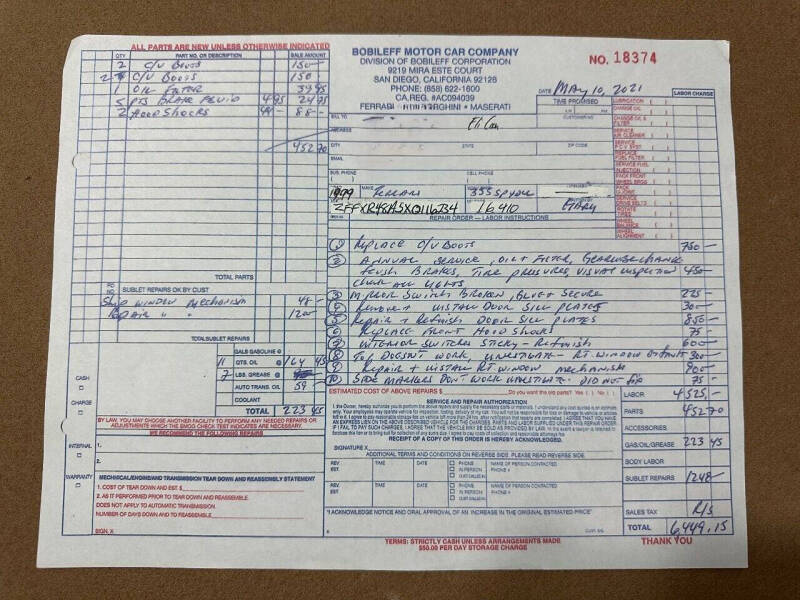 ALL PARTS ARE NEW UNLESS OTHERWISE INDICATED
QTY PART NO. OR DESCRIPTION SALE AMOUNT
2 C/V BOOTS 150-
2 C/V BOOTS 150
1 OIL FILTER 39 95
5 PTS BRAKE FLUID 4 95 24 75
2 HOOD SHOCKS 44- 88-
452 70
TOTAL PARTS
SUBLET REPAIRS OK BY CUST
SHIP WINDOW MECHANISM 48-
REPAIR " " 1200-
TOTAL SUBLET REPAIRS
GALS GASOLINE @
11 QTS. OIL @ 164 45
2 LBS. GREASE @
AUTO TRANS. OIL 59-
COOLANT
TOTAL 223 45
CASH
CHARGE
BY LAW, YOU MAY CHOOSE ANOTHER FACILITY TO PERFORM ANY NEEDED REPAIRS OR
ADJUSTMENTS WHICH THE SMOG CHECK TEST INDICATED ARE NECESSARY.
WE RECOMMEND THE FOLLOWING REPAIRS
INTERNAL
1.
2.
WARRANTY
MECHANICAL/ENGINE/AND TRANSMISSION TEAR DOWN AND REASSEMBLY STATEMENT
1. COST OF TEAR DOWN AND EST. $
2. AS IT PERFORMED PRIOR TO TEAR DOWN AND REASSEMBLE.
DOES NOT APPLY TO AUTOMATIC TRANSMISSION.
NUMBER OF DAYS DOWN AND TO REASSEMBLE
SIGN. X
BOBILEFF MOTOR CAR COMPANY
DIVISION OF BOBILEFF CORPORATION
9219 MIRA ESTE COURT
SAN DIEGO, CALIFORNIA 92126
PHONE: (858) 622-1600
CA.REG. #AC094039
FERRARI LAMBORGHINI MASERATI
NO. 18374
DATE MAY 10, 2021
TIME PROMISED
A.M. P.M.
LABOR CHARGE
BILL TO
CUSTOMER NO.
ADDRESS
CITY STATE ZIP CODE
EMAIL
BUS. PHONE CELL PHONE
1999 MAKE FERRARI 355 SPYDER
ZFFXR48A5X0116234 16,410 GARY
LUBRICATION
CHANGE OIL
CHANGE OIL & FILTER
SERVICE AIR CLEANER
SERVICE P.C.V. SYST.
REPLACE FUEL FILTER
SERVICE FUEL INJECTION
PACK FRONT WHEEL BRGS.
SERVICE DRIVE BELTS
ROTATE TIRES
WHEEL BALANCE
WHEEL ALIGNMENT
REPAIR ORDER - LABOR INSTRUCTIONS
1 REPLACE C/V BOOTS 750-
2 ANNUAL SERVICE, OIL & FILTER, GEARLUBE CHANGE
FLUSH BRAKES, TIRE PRESSURES, VISUAL INSPECTION 450-
CHECK ALL LIGHTS
3 MIRROR SWITCH BROKEN, GLUE & SECURE 225-
4 REMOVE & INSTALL DOOR SILL PLATES 300-
5 REPAIR & REFINISH DOOR SILL PLATES 850-
6 REPLACE FRONT HOOD SHOCKS 75-
7 INTERIOR SWITCHES STICKY - REFINISH 600-
8 TOP DOESN'T WORK, INVESTIGATE - RT. WINDOW 300-
9 REPAIR & INSTALL RT WINDOW MECHANISM 900-
10 SIDE MARKERS DON'T WORK INVESTIGATE. DID NOT FIX 75-
ESTIMATED COST OF ABOVE REPAIRS $ Do you want the old parts? Yes ( ) No ( )
SERVICE AND REPAIR AUTHORIZATION
RECEIPT OF A COPY OF THIS ORDER IS HEREBY ACKNOWLEDGED.
SIGNATURE X
ADDITIONAL TERMS AND CONDITIONS ON REVERSE SIDE. PLEASE READ REVERSE SIDE.
REV. EST. TIME DATE PHONE IN PERSON CUST CALLED IN NAME OF PERSON CONTACTED PHONE #
REV. EST. TIME DATE PHONE IN PERSON CUST CALLED IN NAME OF PERSON CONTACTED PHONE #
"I ACKNOWLEDGE NOTICE AND ORAL APPROVAL OF AN INCREASE IN THE ORIGINAL ESTIMATED PRICE"
LABOR 4525-
PARTS 452 70
ACCESSORIES
GAS/OIL/GREASE 223 45
BODY LABOR
SUBLET REPAIRS 1248-
SALES TAX R/S
TOTAL 6,449.15
TERMS: STRICTLY CASH UNLESS ARRANGEMENTS MADE
$50.00 PER DAY STORAGE CHARGE
THANK YOU